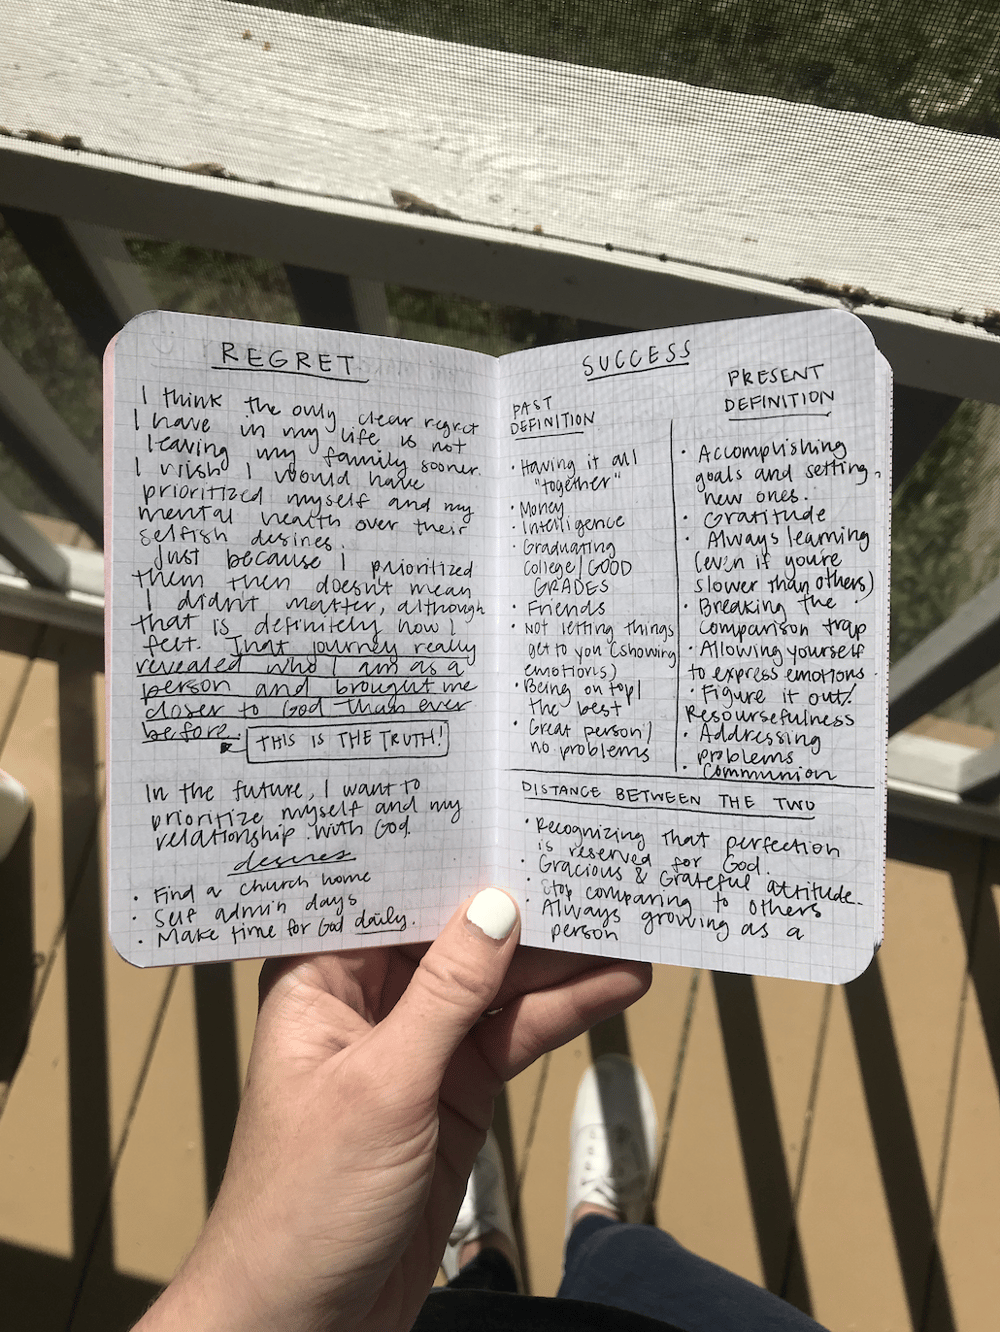 REGRET
I think the only clear regret
I have in my life is not
leaving my family sooner.
I wish I would have
prioritized myself and my
mental health over their
selfish desires.
Just because I prioritized
them then doesn't mean
I didn't matter, although
that is definitely how I
felt. That journey really
revealed who I am as a
person and brought me
closer to God than ever
before.
THIS IS THE TRUTH!
In the future, I want to
prioritize myself and my
relationship with God.
desires
• Find a church home
• Self admin days
• Make time for God daily.
SUCCESS
PAST
DEFINITION
• Having it all
"together"
• Money
• Intelligence
• Graduating
College/GOOD
GRADES
• Friends
• Not letting things
get to you (showing
emotions)
• Being on top/
the best
• Great person/
no problems
PRESENT
DEFINITION
• Accomplishing
goals and setting
new ones.
• Gratitude
• Always learning
(even if youre
slower than others)
• Breaking the
comparison trap
• Allowing yourself
to express emotions.
• Figure it out/
Resoursefulness
• Addressing
problems
• Communion
DISTANCE BETWEEN THE TWO
• Recognizing that perfection
is reserved for God.
• Gracious & Grateful attitude.
• Stop comparing to others
• Always growing as a
person